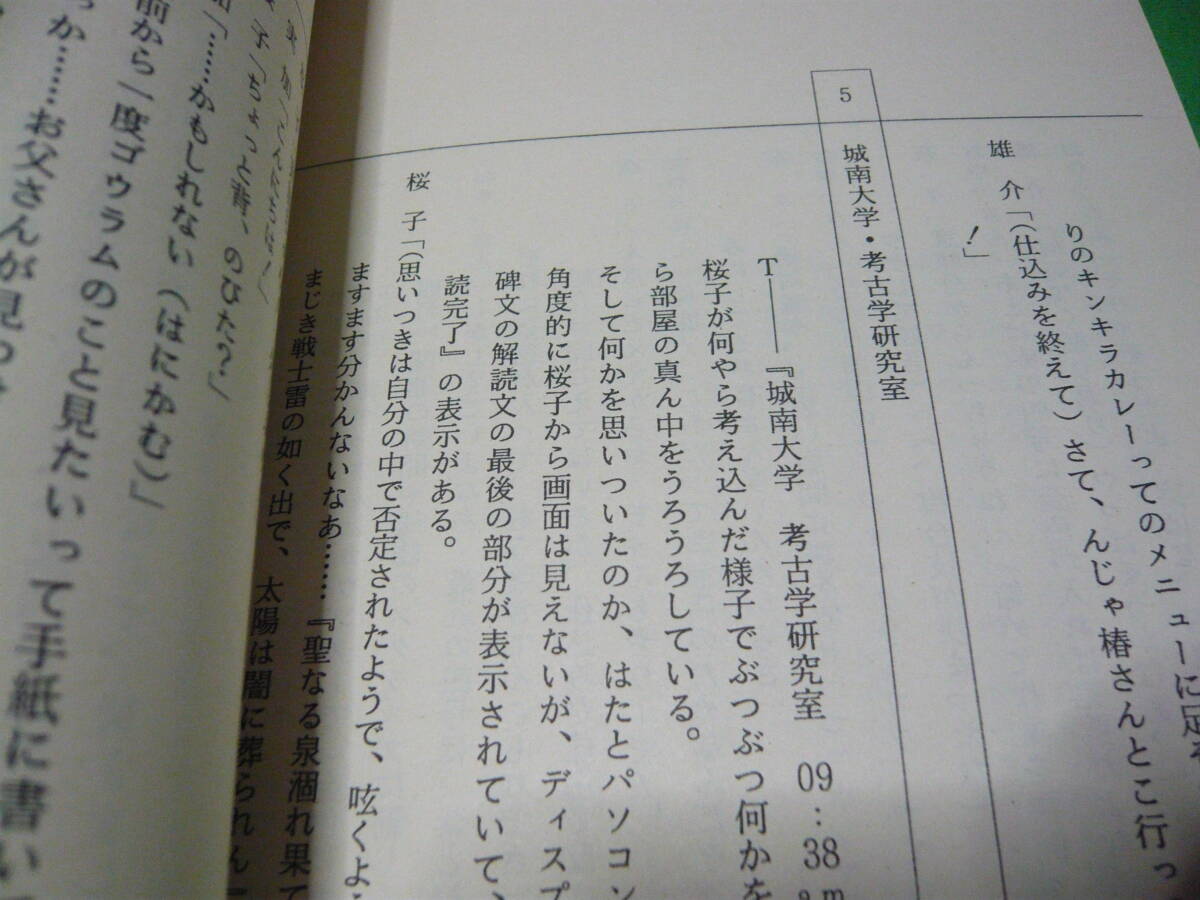 りのキンキラカレーってのメニューに定
雄 介「(仕込みを終えて)さて、んじゃ椿さんとこ行っ
!」
5
城南大学・考古学研究室
T――『城南大学 考古学研究室 09:38am
桜子が何やら考え込んだ様子でぶつぶつ何かを
ら部屋の真ん中をうろうろしている。
そして何かを思いついたのか、はたとパソコン
角度的に桜子から画面は見えないが、ディスプ
碑文の解読文の最後の部分が表示されていて、
読完了』の表示がある。
桜 子「(思いつきは自分の中で否定されたようで、呟くよ
ますます分かんないなあ……『聖なる泉涸れ果て
まじき戦士雷の如く出で、太陽は闇に葬られん
加「こんにちは!」
子「ちょっと背、のびた?」
「……かもしれない(はにかむ)」
前から一度ゴウラムのこと見たいって手紙に書い
っか……お父さんが見つ